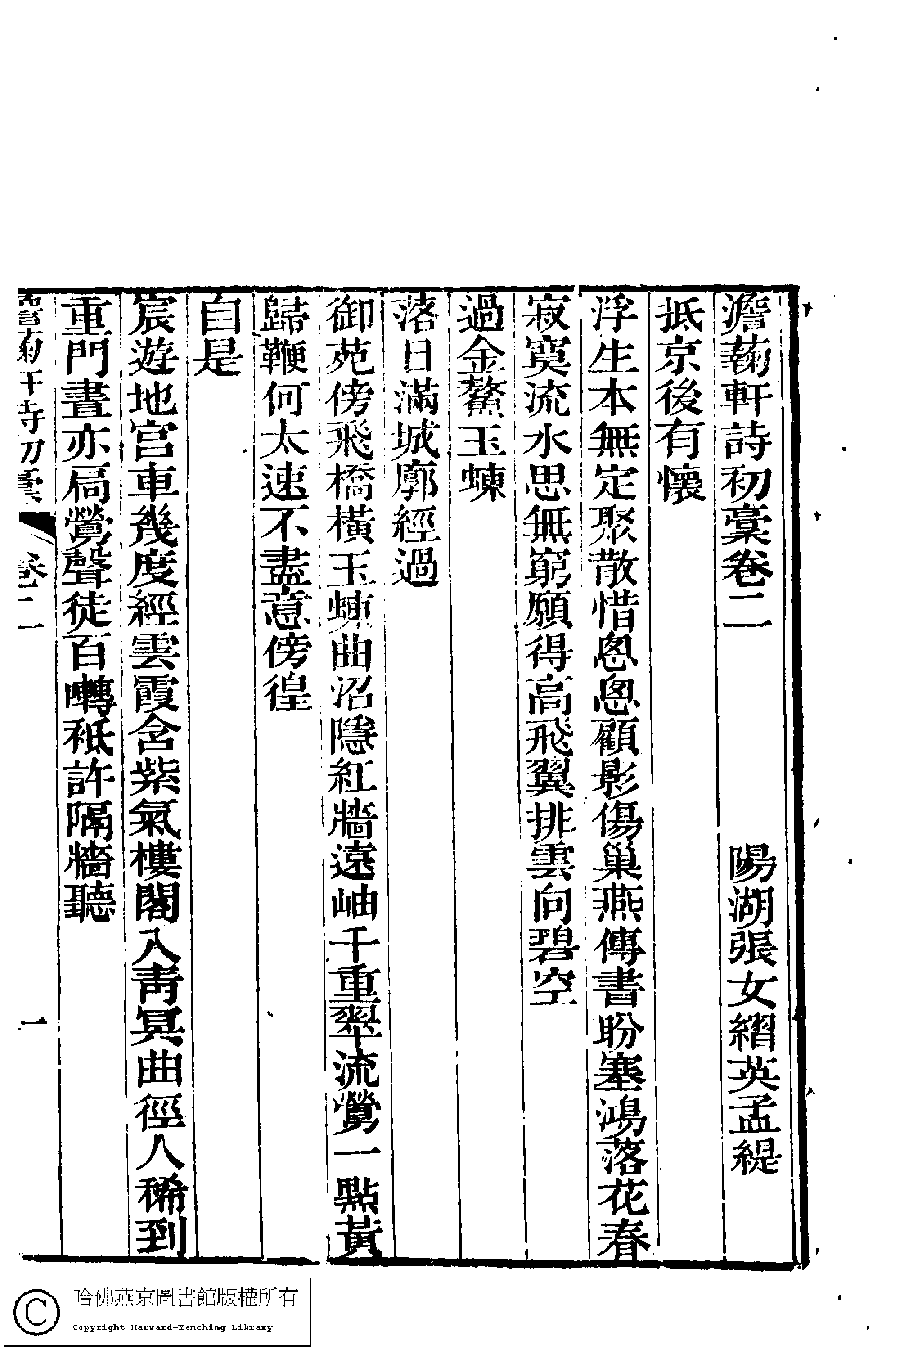 澹蘜軒詩初稾卷二　陽湖張女䌌英孟緹
抵京後有懷
浮生本無定聚散惜悤悤顧影傷巢燕傳書盼塞鴻落花春
寂寞流水思無窮願得高飛翼排雲向碧空
過金鰲玉蝀
落日滿城廓經過
御苑傍飛橋橫玉蝀曲沼隱紅牆遠岫千重翠流鶯一點黃
歸鞭何太速不盡意傍徨
自是
宸遊地宮車幾度經雲霞含紫氣樓閣入靑冥曲徑人稀到
重門晝亦扃鶯聲徒百囀衹許隔牆聽
澹蘜軒詩初稾 卷二 一
哈佛燕京圖書館版權所有
Copyright Harvard-Yenching Library